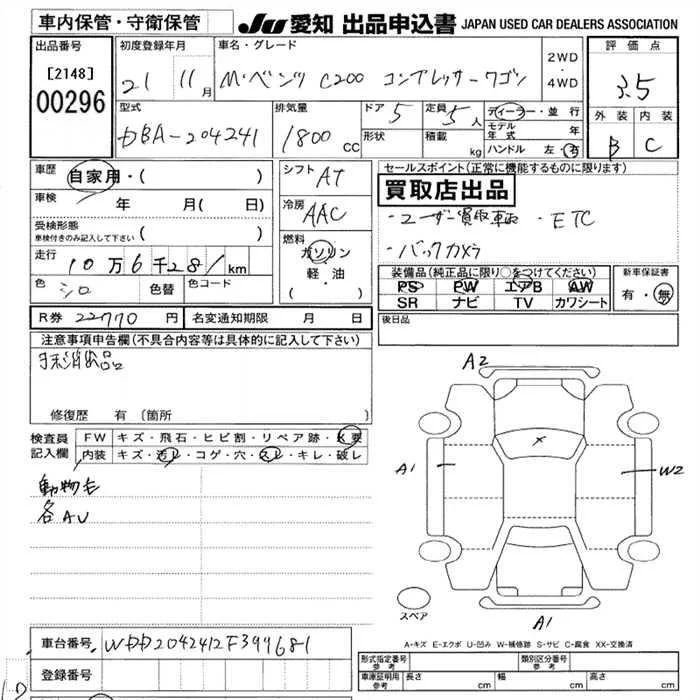 車内保管・守衛保管 JU 愛知 出品申込書 JAPAN USED CAR DEALERS ASSOCIATION
出品番号 初度登録年月 車名・グレード 2WD ・ 4WD 評価点
[2148]
00296
21 11月 M・ベンツ C200 コンプレッサーワゴン 3.5
型式 排気量 ドア 5 定員 5人 ディーラー・並行 外装 内装
DBA-204241 1800cc 形状 積載 kg モデル年式 年 B C
ハンドル 左・右
車歴 自家用・( ) シフト AT セールスポイント(正常に機能するものに限ります)
車検 年 月( 日) 冷房 AAC 買取店出品
受検形態 車検付きのみ記入して下さい ( ) ・ユーザー買取車輌 ・ETC
走行 10万6千281km 燃料 ガソリン・軽・油 ( ) ・バックカメラ
色 シロ 色替 色コード 装備品(純正品に限り○をつけてください) 新車保証書
PS PW エアB AW 有・無
SR ナビ TV カワシート
R券 22770円 名変通知期限 月 日 後日品
注意事項申告欄(不具合内容等は具体的に記入して下さい)
修復歴 有 (箇所
検査員記入欄 FW キズ・飛石・ヒビ割・リペア跡・X要
内装 キズ・汚レ・コゲ・穴・スレ・キレ・破レ
動物毛
各AU
A2
A1 X W2
スペア A1
A-キズ E-エクボ U-凹み W-補修跡 S-サビ C-腐食 XX-交換済
車台番号 WDD2042412F399681
登録番号
形式指定番号 参考 類別区分番号 参考
車庫証明用 参考 長さ cm 幅 cm 高さ cm